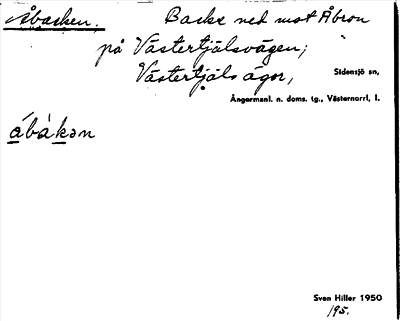 Åbacken. Backe ned mot Åbron
på Västertjälsvägen;
Västertjäls ägor, Sidensjö sn,
Ångermanl. n. doms. tg., Västernorrl. l.
å̀bàkən
Sven Hiller 1950
195.